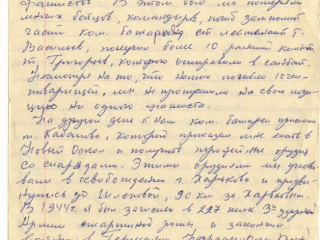 фашистов. В этом бою мы потеряли
многих бойцов, командиров, погиб замполит
части ком. батареи ст. лейтенант т.
Васильев, получил более 10 ранений
т. Григорьев, которого отправили в санбат.
Несмотря на то, что наших погибло 10 чел-
, мы не пропустили на свою пози-
цию ни одного фашиста.
На другой день к нам ком. батареи прислали
т. Кабанова, который приказал мне ехать в
Новый Оскол и получить орудие
со снарядами. Этими орудиями мы участво-
вали в освобождении г. Харькова и продви-
нулись до 90 км за Харьковом.
В 1944 г. я был зачислен в 227 3й ударной
Армии старшиной роты, и закончил
войну в Германии.